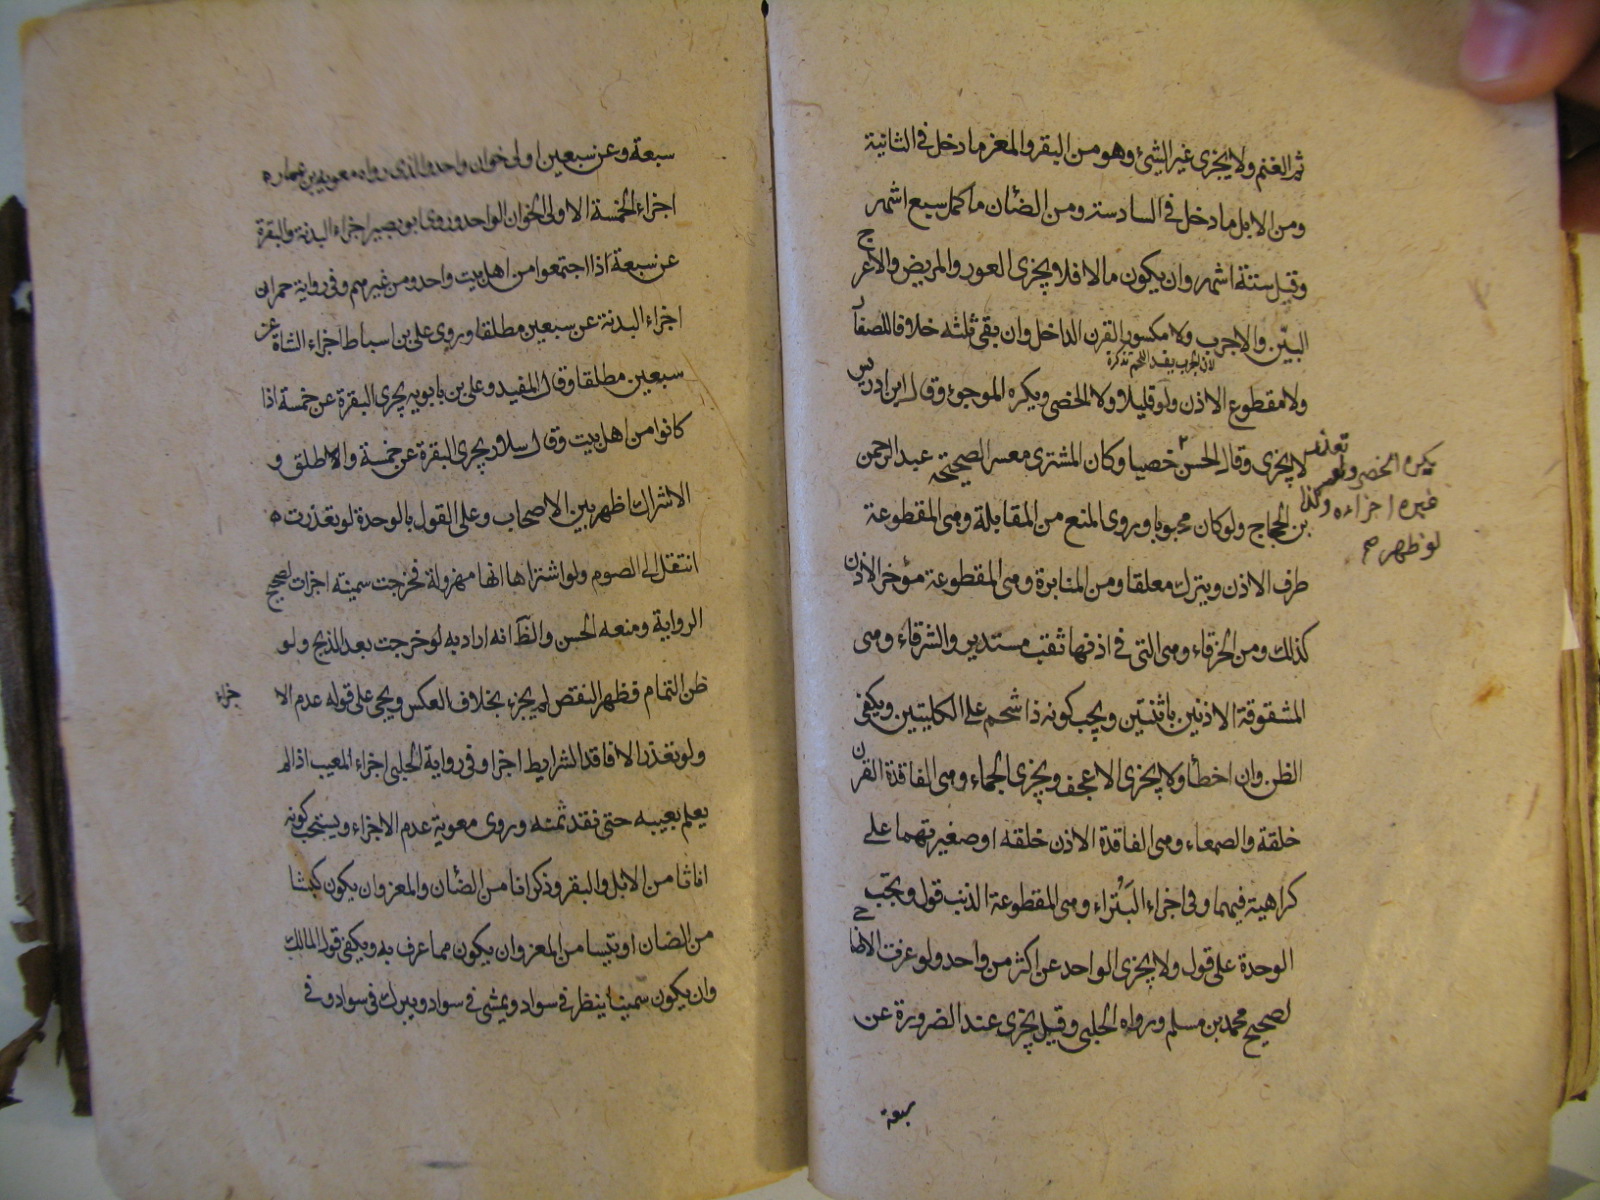 ثم الغنم ولا يجزى غير الثنى وهو من البقر والمعز ما دخل فى الثانية
ومن الابل ما دخل فى السادسة ومن الضأن ما كمل سبع اشهر
وقيل ستة اشهر وان يكون تاما فلا يجزى العور والمريض والاعرج
البيّن والاجرب ولا مكسور القرن الداخل وان بقى ثلثه خلافا للصفا
لان الجرب يفسد اللحم تذكرة
ولا مقطوع الاذن ولو قليلا ولا الخصى ويكره الموجوء وقال ابن ادريس
لا يجزى وقال الحسن خصيا وكان المشترى معسرا لصحيحة عبد الرحمن
يكره الخصى ولو تعذر
غيره اجزاءه وكذا
لو ظهر
بن الحجاج ولو كان مجبوبا وروى المنع من المقابلة وهى المقطوعة
طرف الاذن ويترك معلقا ومن المدابرة وهى المقطوعة مؤخر الاذن
كذلك ومن الخرقاء وهى التى فى اذنها ثقب مستدير والشرقاء وهى
المشقوقة الاذنين باثنتين ويجب كونه ذا شحم على الكليتين ويكفى
الظن وان اخطأ ولا يجزى الاعجف ويجزى الجماء وهى الفاقدة القرن
خلقة والصمعاء وهى الفاقدة الاذن خلقه او صغيرتهما على
كراهية فيهما وفى اجزاء البَتْراء وهى المقطوعة الذنب قول ويجب
الوحدة على قول ولا يجزى الواحد عن اكثر من واحد ولو عزت الاضاحى
لصحيح محمد بن مسلم ورواه الحلبى وقيل يجزى عند الضرورة عن
سبعة
سبعة وعن سبعين اولى خوان واحد والذى رواه معوية بن عمار
اجزاء الخمسة الاولى الخوان الواحد وروى ابو بصير اجزاء البدنة والبقرة
عن سبعة اذا اجتمعوا من اهل بيت واحد ومن غيرهم وفى رواية حمران
اجزاء البدنة عن سبعين مطلقا وروى على بن اسباط اجزاء الشاة عن
سبعين مطلقا وقال المفيد وعلى بن بابويه يجزى البقرة عن خمسة اذا
كانوا من اهل بيت وقال سلار يجزى البقرة عن خمسة والاطلق و
الاشراك اظهر بين الاصحاب وعلى القول بالوحدة لو تعذرت
انتقل الى الصوم ولو اشتراها انها مهزولة فخرجت سمينه اجزات لصحيح
الرواية ومنعه الحسن والظآ انه اراد به لو خرجت بعد الذبح ولو
ظن التمام فظهر النقص لم يجزء بخلاف العكس ويجى على قوله عدم الا
جزاء
ولو تعذر الا فاقد الشرايط اجزا وفى رواية الحلبى اجزاء المعيب اذا لم
يعلم بعيبه حتى نقد ثمنه وروى معوية عدم الاجزاء ويستحب كونه
اناثا من الابل والبقر وذكرانا من الضأن والمعز وان يكون كبشا
من الضان او تيسا من المعز وان يكون مما عرف به ويكفى قول المالك
وان يكون سمينا ينظر فى سواد ويمشى فى سواد ويبرك فى سواد و فى